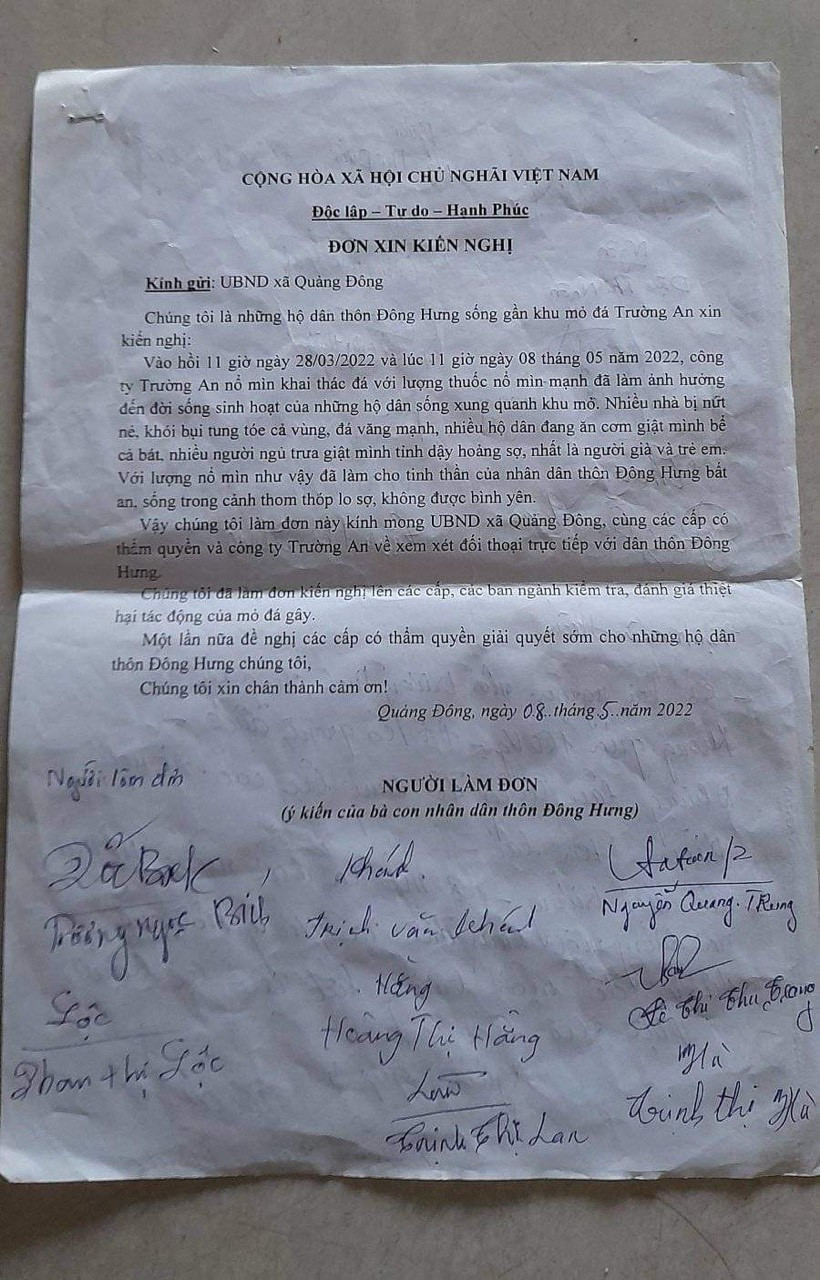 CỘNG HÒA XÃ HỘI CHỦ NGHĂI VIỆT NAM
Độc lập – Tự do – Hạnh Phúc
ĐƠN XIN KIẾN NGHỊ
Kính gửi: UBND xã Quảng Đông
Chúng tôi là những hộ dân thôn Đông Hưng sống gần khu mỏ đá Trường An xin
kiến nghị:
Vào hồi 11 giờ ngày 28/03/2022 và lúc 11 giờ ngày 08 tháng 05 năm 2022, công
ty Trường An nổ mìn khai thác đá với lượng thuốc nổ mìn mạnh đã làm ảnh hưởng
đến đời sống sinh hoạt của những hộ dân sống xung quanh khu mỏ. Nhiều nhà bị nứt
nẻ, khói bụi tung tóe cả vùng, đá văng mạnh, nhiều hộ dân đang ăn cơm giật mình bể
cả bát, nhiều người ngủ trưa giật mình tỉnh dậy hoảng sợ, nhất là người già và trẻ em.
Với lượng nổ mìn như vậy đã làm cho tinh thần của nhân dân thôn Đông Hưng bất
an, sống trong cảnh thom thóp lo sợ, không được bình yên.
Vậy chúng tôi làm đơn này kính mong UBND xã Quảng Đông, cùng các cấp có
thẩm quyền và công ty Trường An về xem xét đối thoại trực tiếp với dân thôn Đông
Hưng.
Chúng tôi đã làm đơn kiến nghị lên các cấp, các ban ngành kiểm tra, đánh giá thiệt
hại tác động của mỏ đá gây.
Một lần nữa đề nghị các cấp có thẩm quyền giải quyết sớm cho những hộ dân
thôn Đông Hưng chúng tôi,
Chúng tôi xin chân thành cảm ơn!
Quảng Đông, ngày 08..tháng.5..năm 2022
Người làm đơn
NGƯỜI LÀM ĐƠN
(ý kiến của bà con nhân dân thôn Đông Hưng)
Khánh
Trương Ngọc Bích
Trịnh Văn Khánh
Nguyễn Quang Trung
Hằng
Lộc
Hoàng Thị Hằng
Lê Thị Thu Trang
Phan Thị Lộc
Hà
Lan
Trịnh Thị Lan
Trịnh Thị Hà